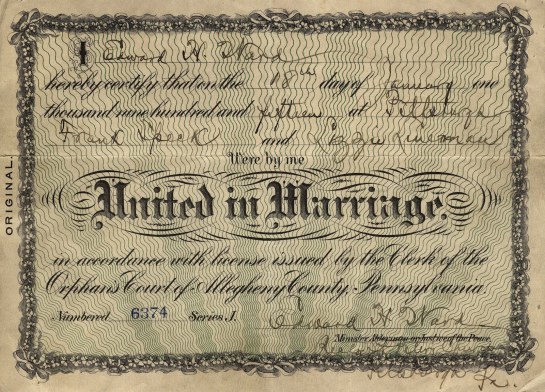 I Edward H. Ward
hereby certify that on the 18th day of January one
thousand nine hundred and fifteen at Pittsburgh
Frank Speck and Lizzie Lineman
Were by me
United in Marriage.
in accordance with license issued by the Clerk of the
Orphans Court of Allegheny County, Pennsylvania.
Numbered 6374 Series J.
Edward H. Ward
Minister Alderman or Justice of the Peace.
Pa.
ORIGINAL.